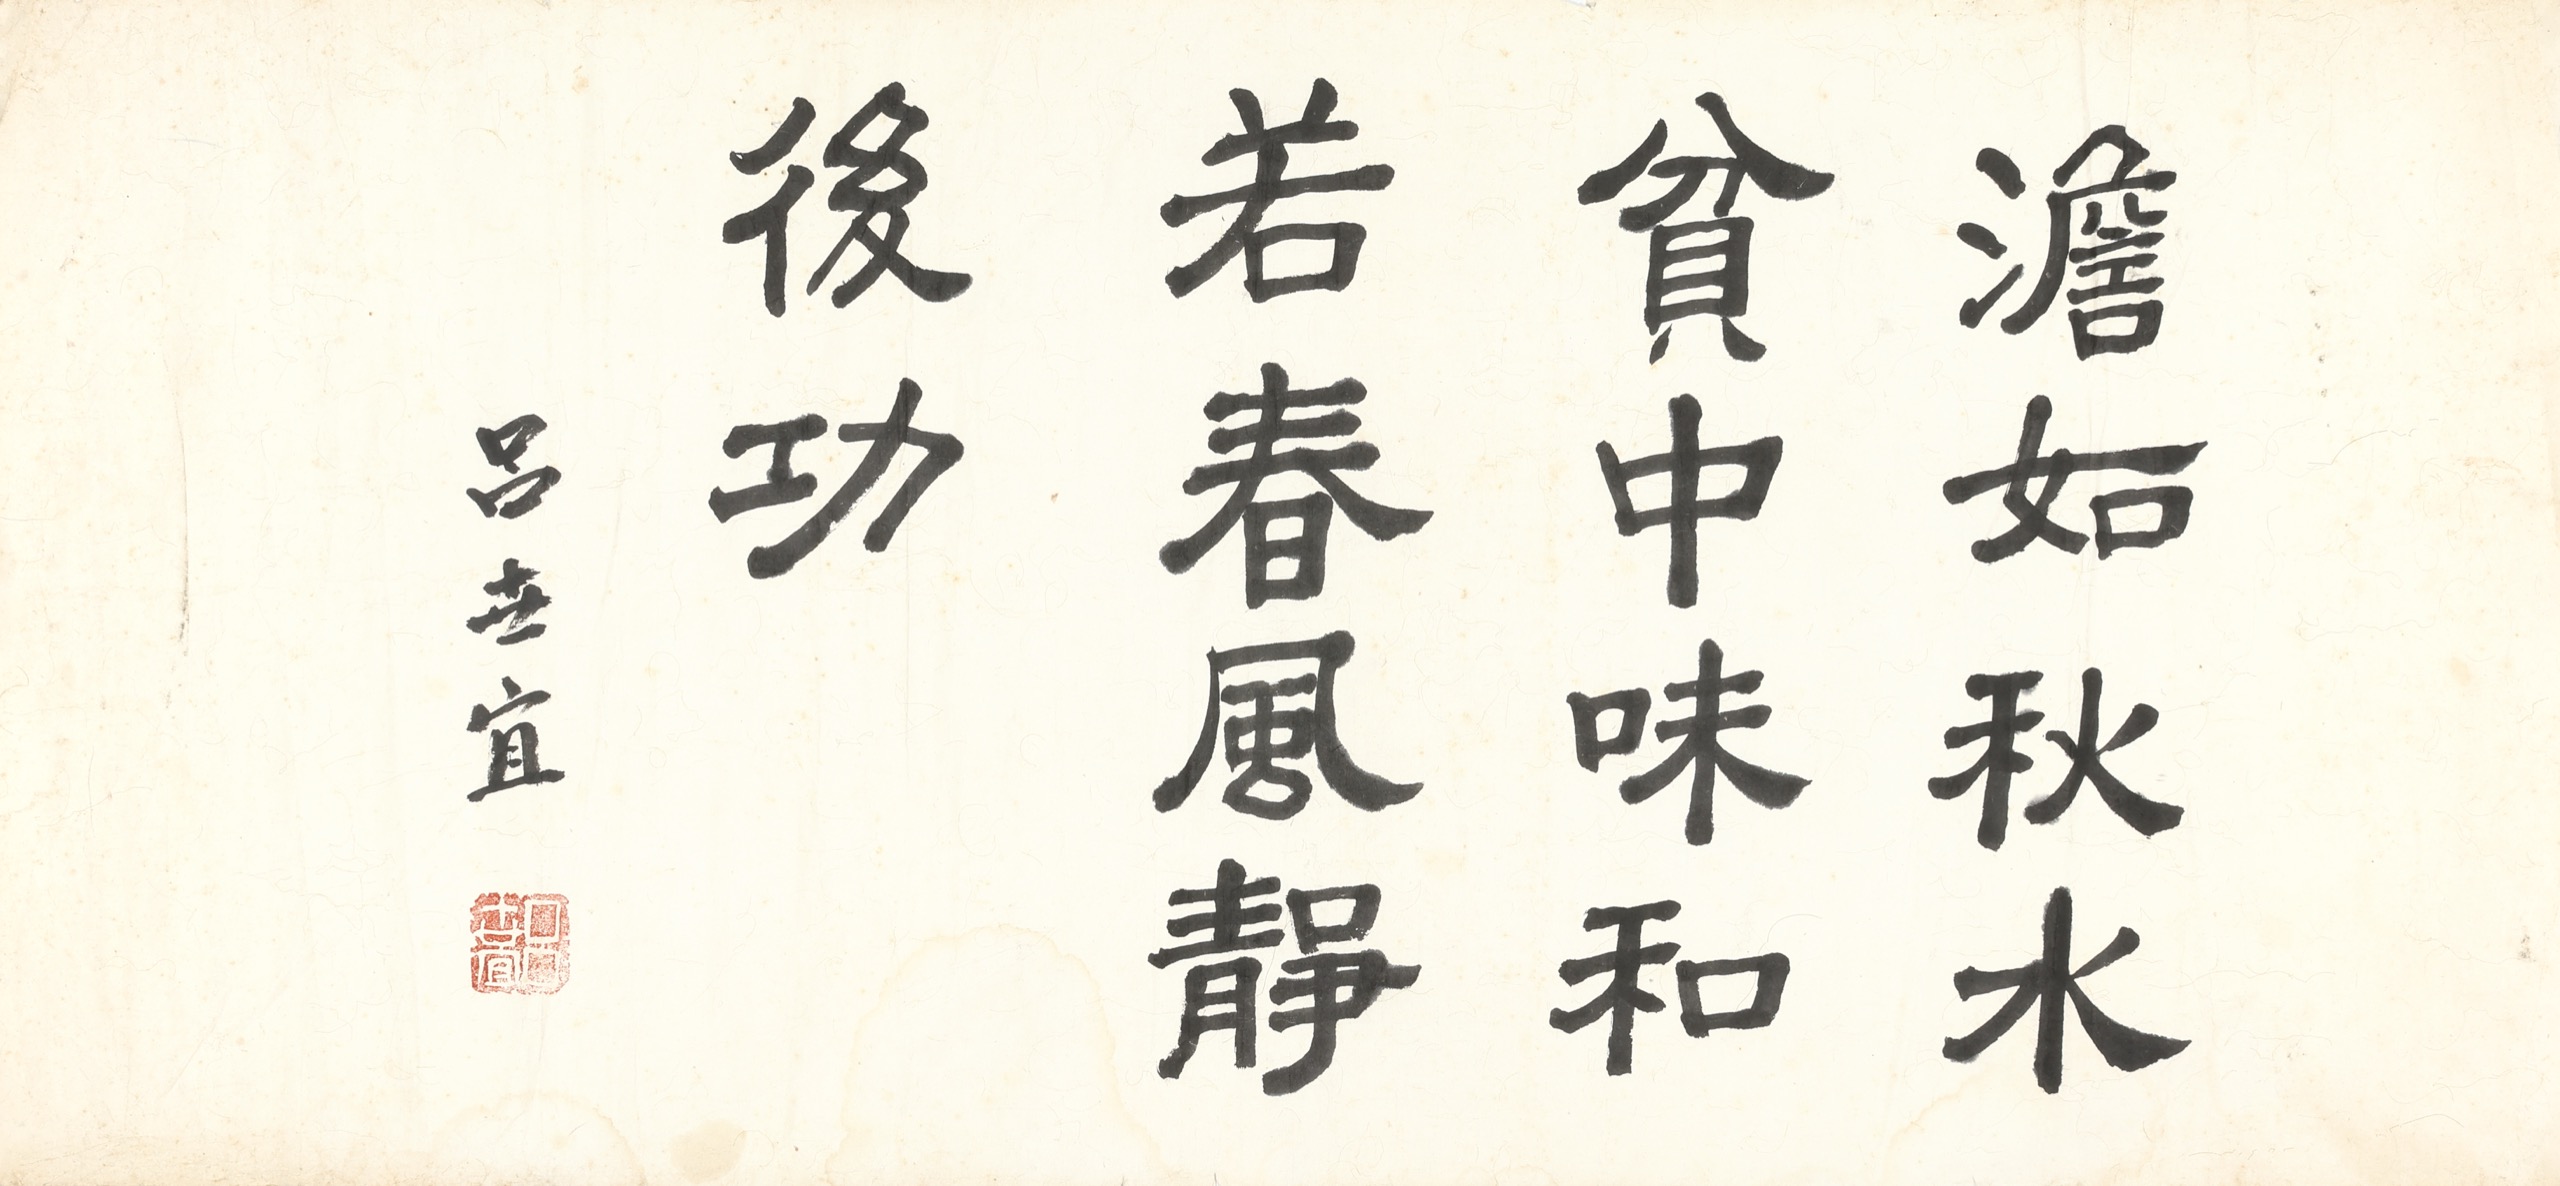 澹如秋水
貧中味和
若春風靜
後功
呂世宜
呂世宜